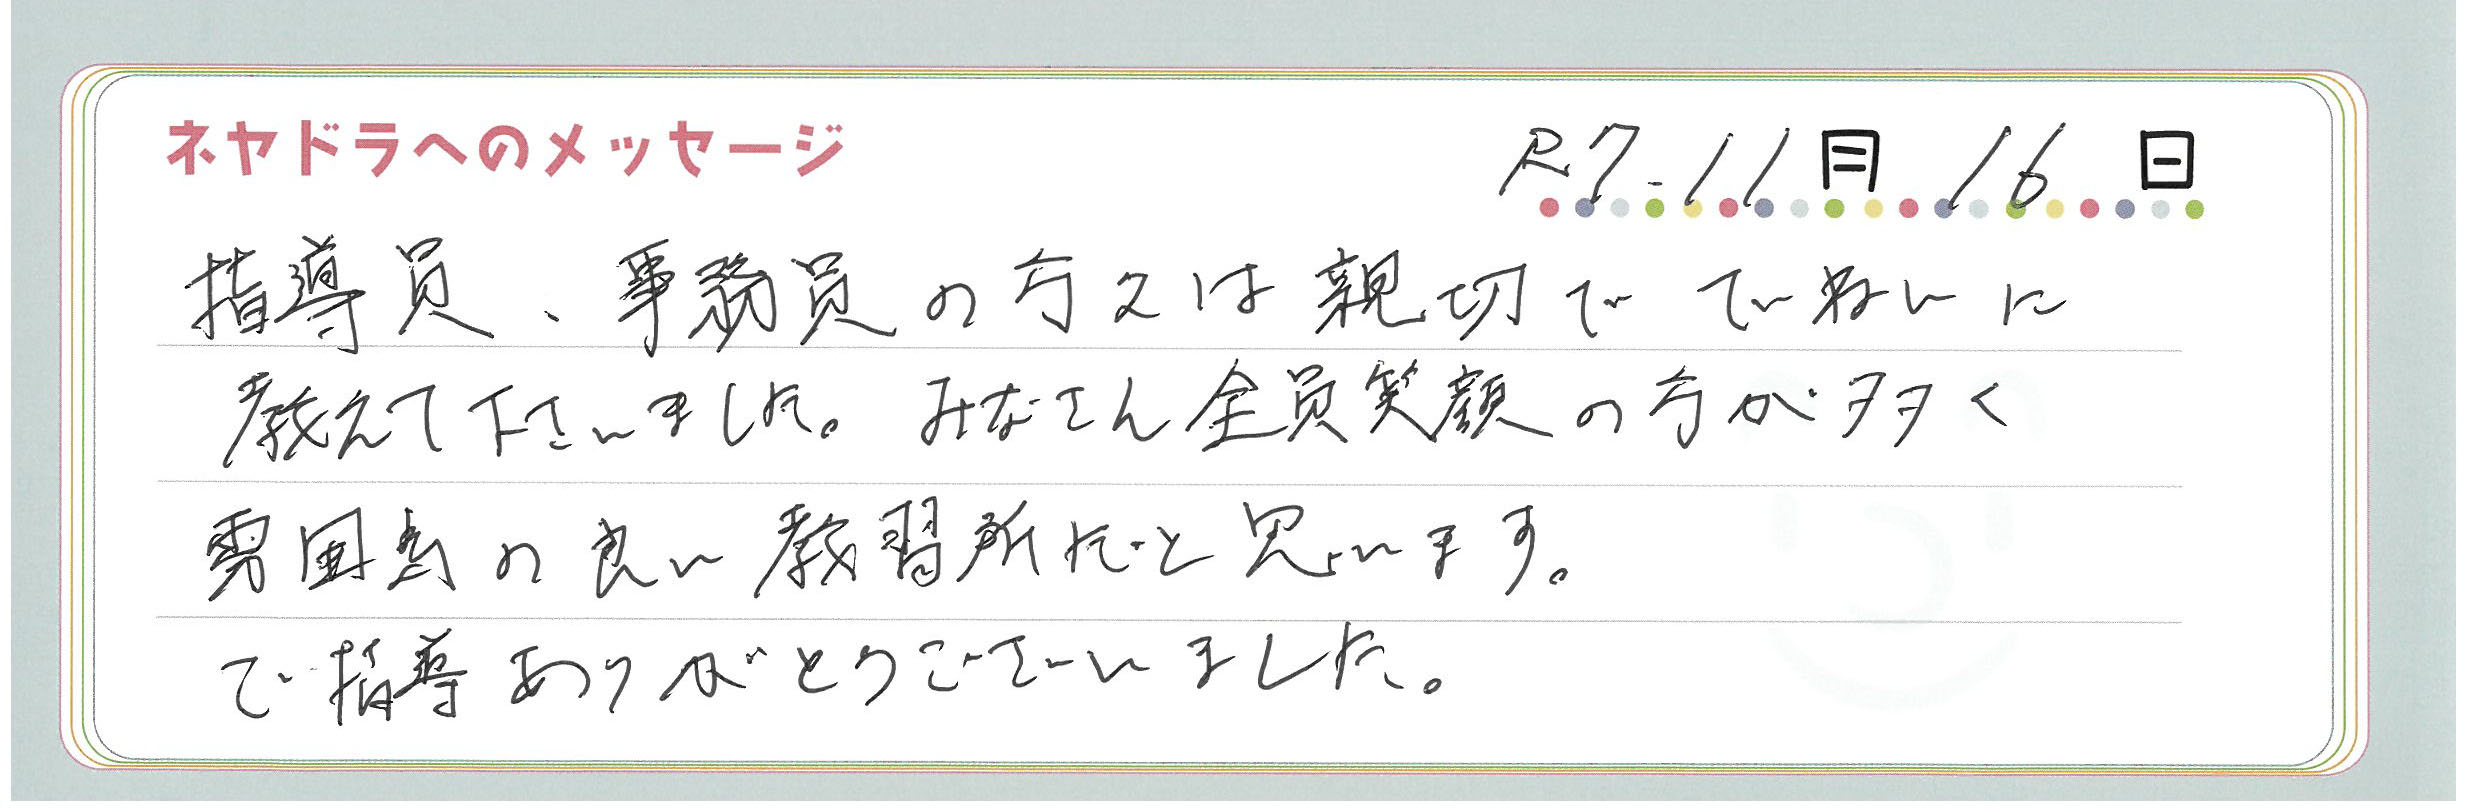 ネヤドラへのメッセージ
R7.11月16日
指導員、事務員の方々は親切でていねいに
教えて下さいました。みなさん全員笑顔の方が多く
雰囲気の良い教習所だと思います。
ご指導ありがとうございました。